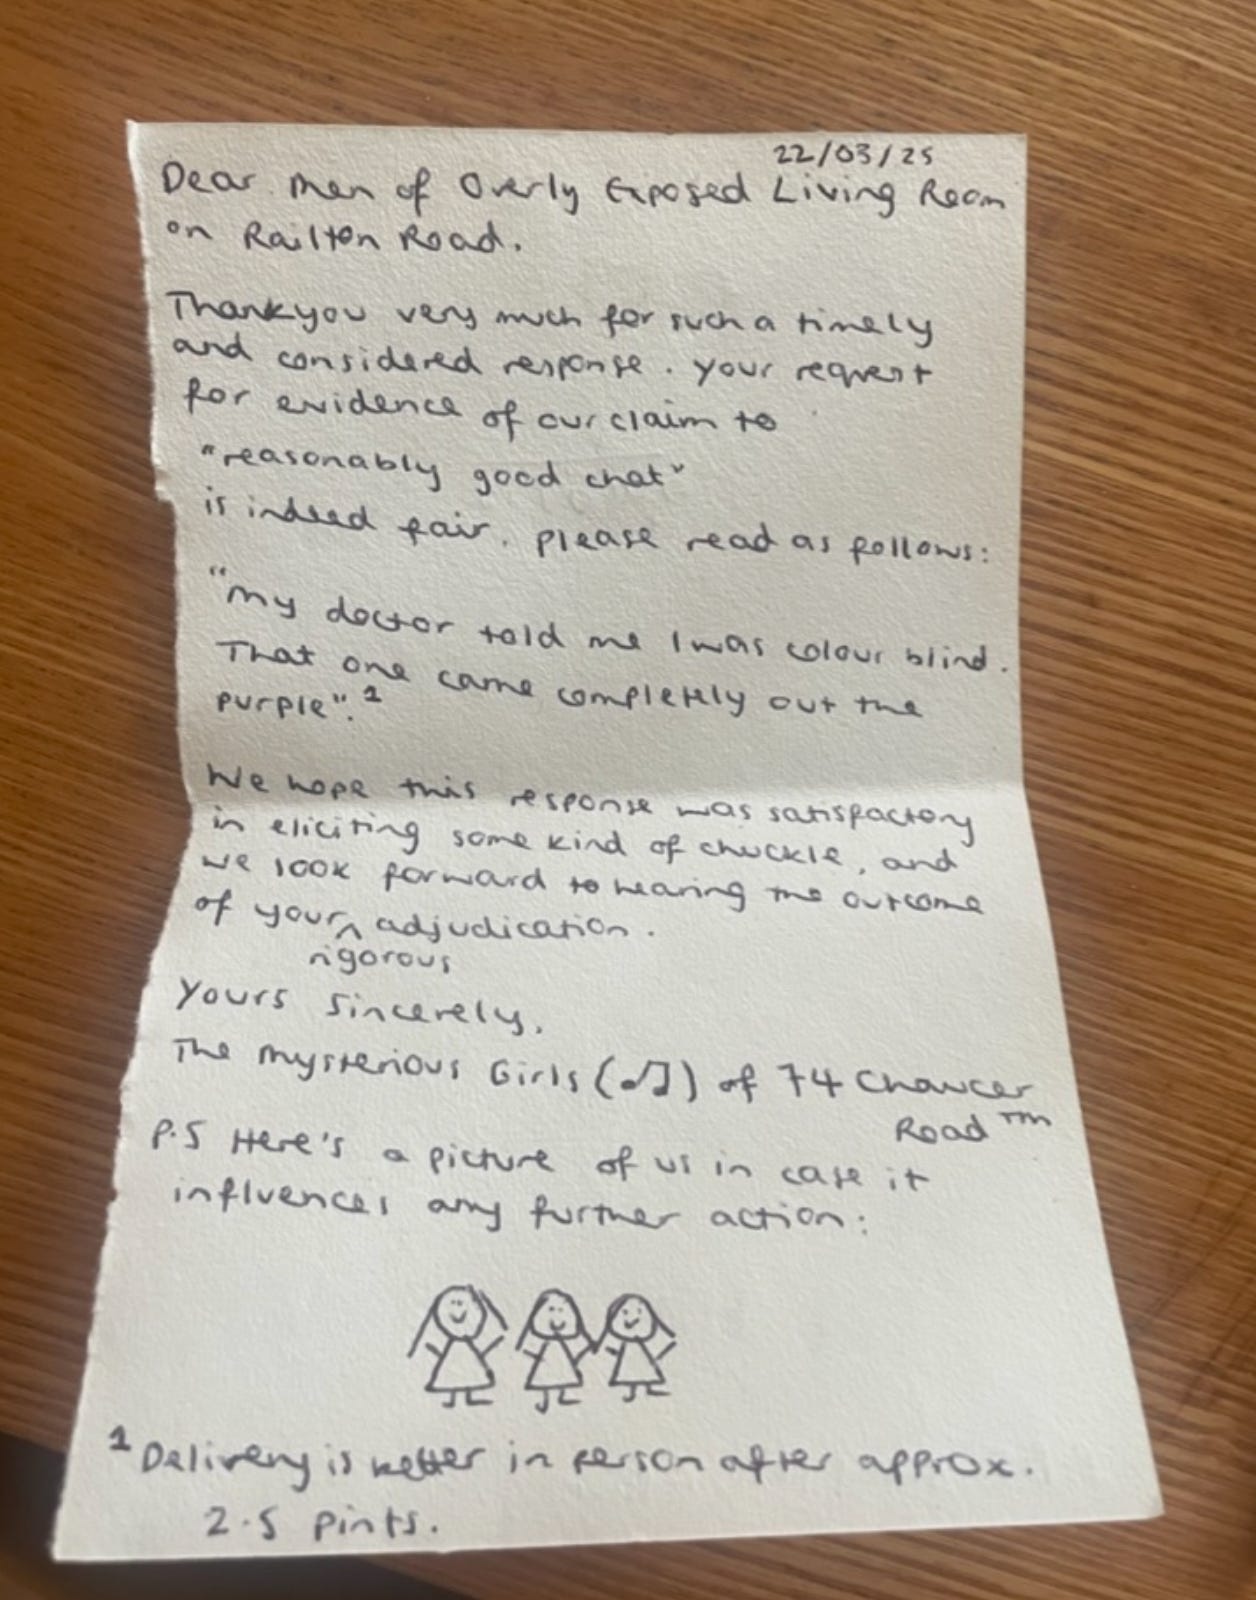 22/03/25
Dear Men of Overly Exposed Living Room
on Railton Road.
Thankyou very much for such a timely
and considered response. Your request
for evidence of our claim to
"reasonably good chat"
is indeed fair. Please read as follows:
"My doctor told me I was colour blind.
That one came completely out the
purple".¹
We hope this response was satisfactory
in eliciting some kind of chuckle, and
we look forward to hearing the outcome
of your ^ adjudication.
rigorous
Yours Sincerely,
The Mysterious Girls (♫) of 74 Chaucer
Road ™
P.S Here's a picture of us in case it
influences any further action:
¹ Delivery is better in person after approx.
2.5 pints.